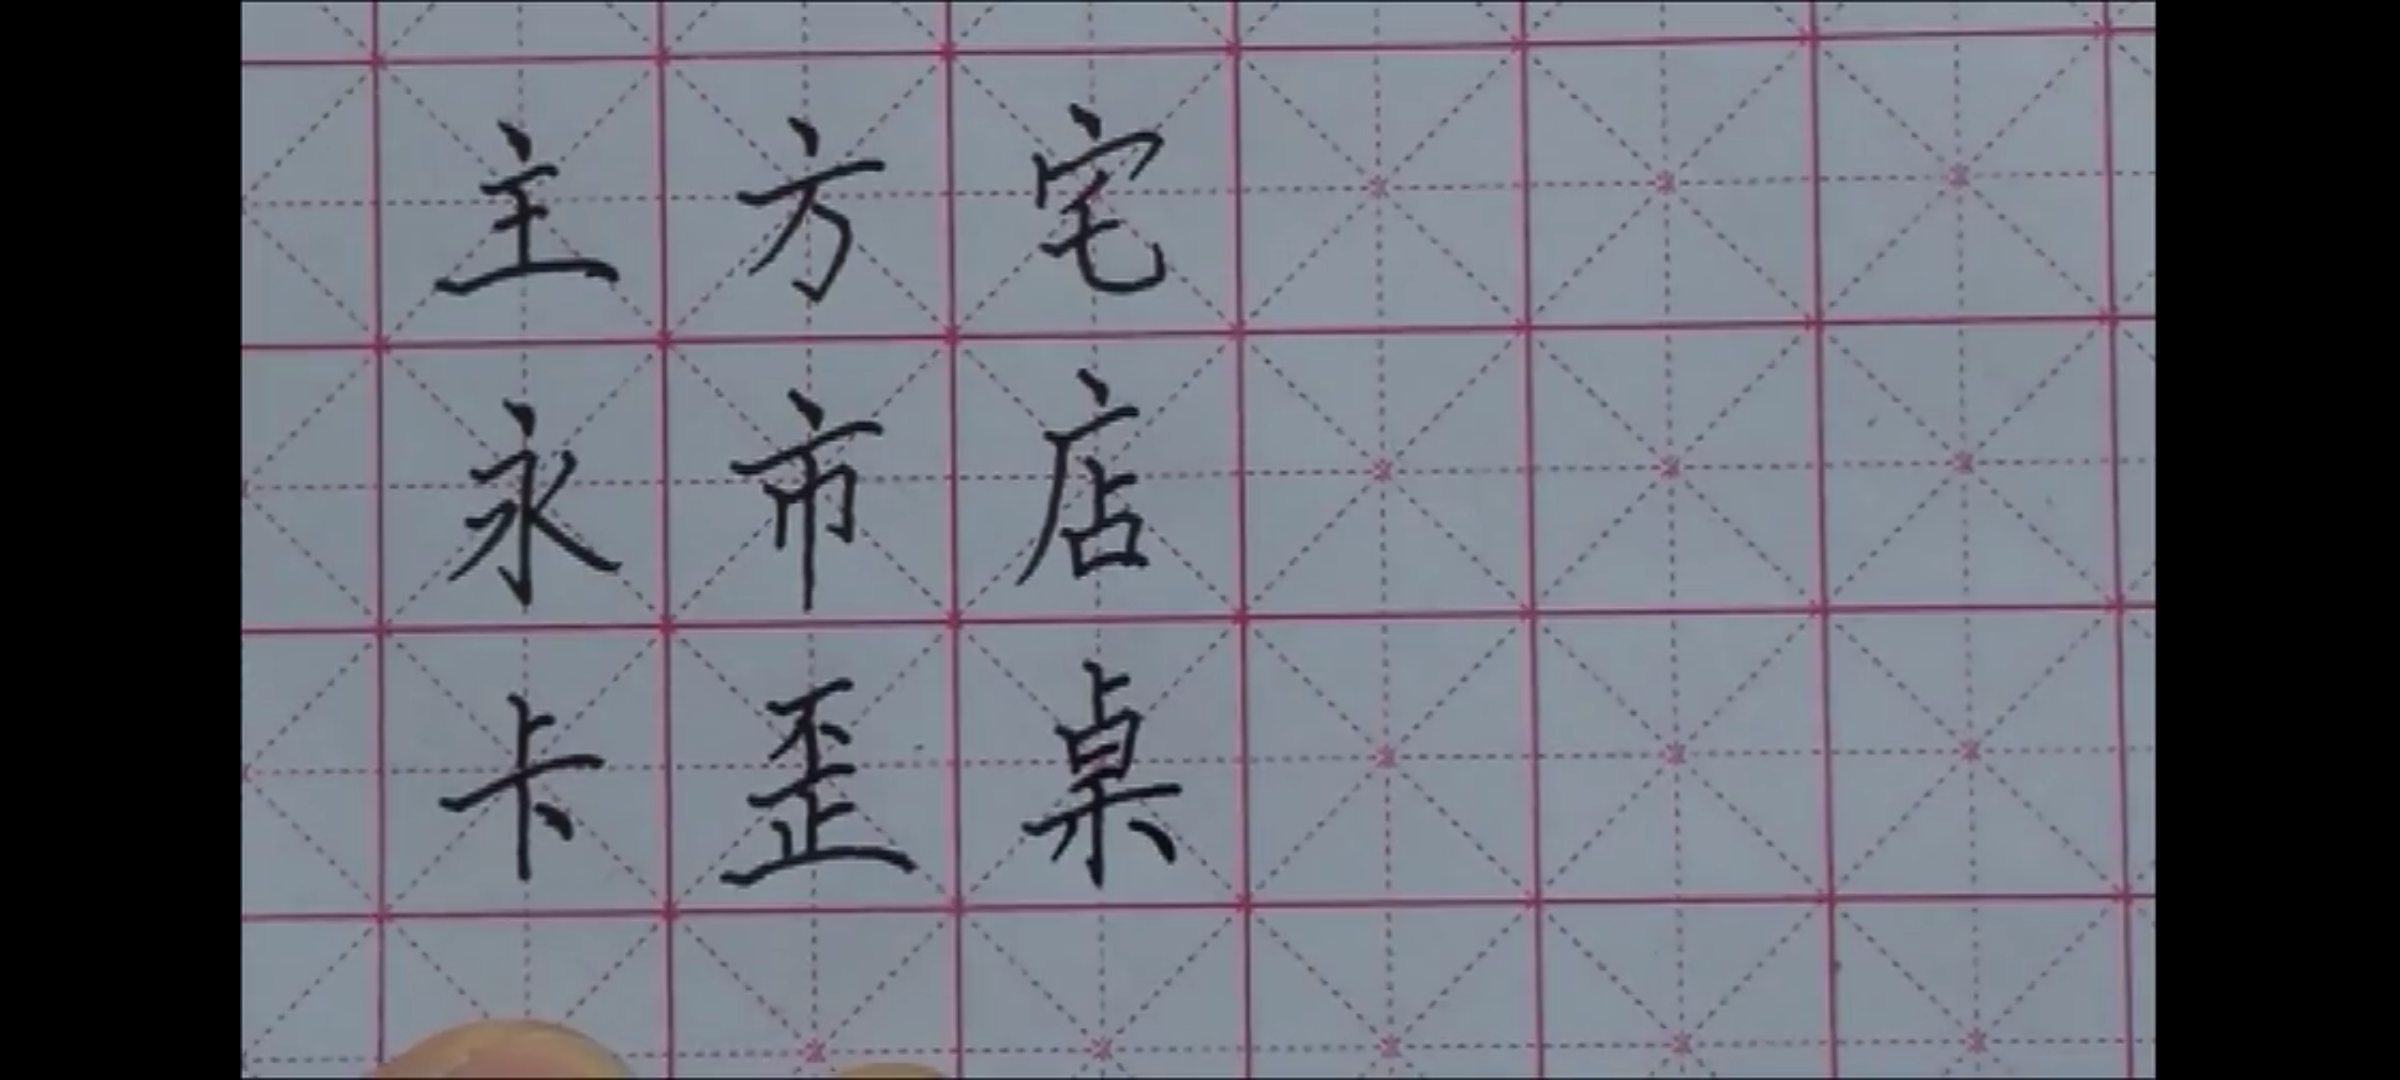 主方宅
永市店
卡歪桌